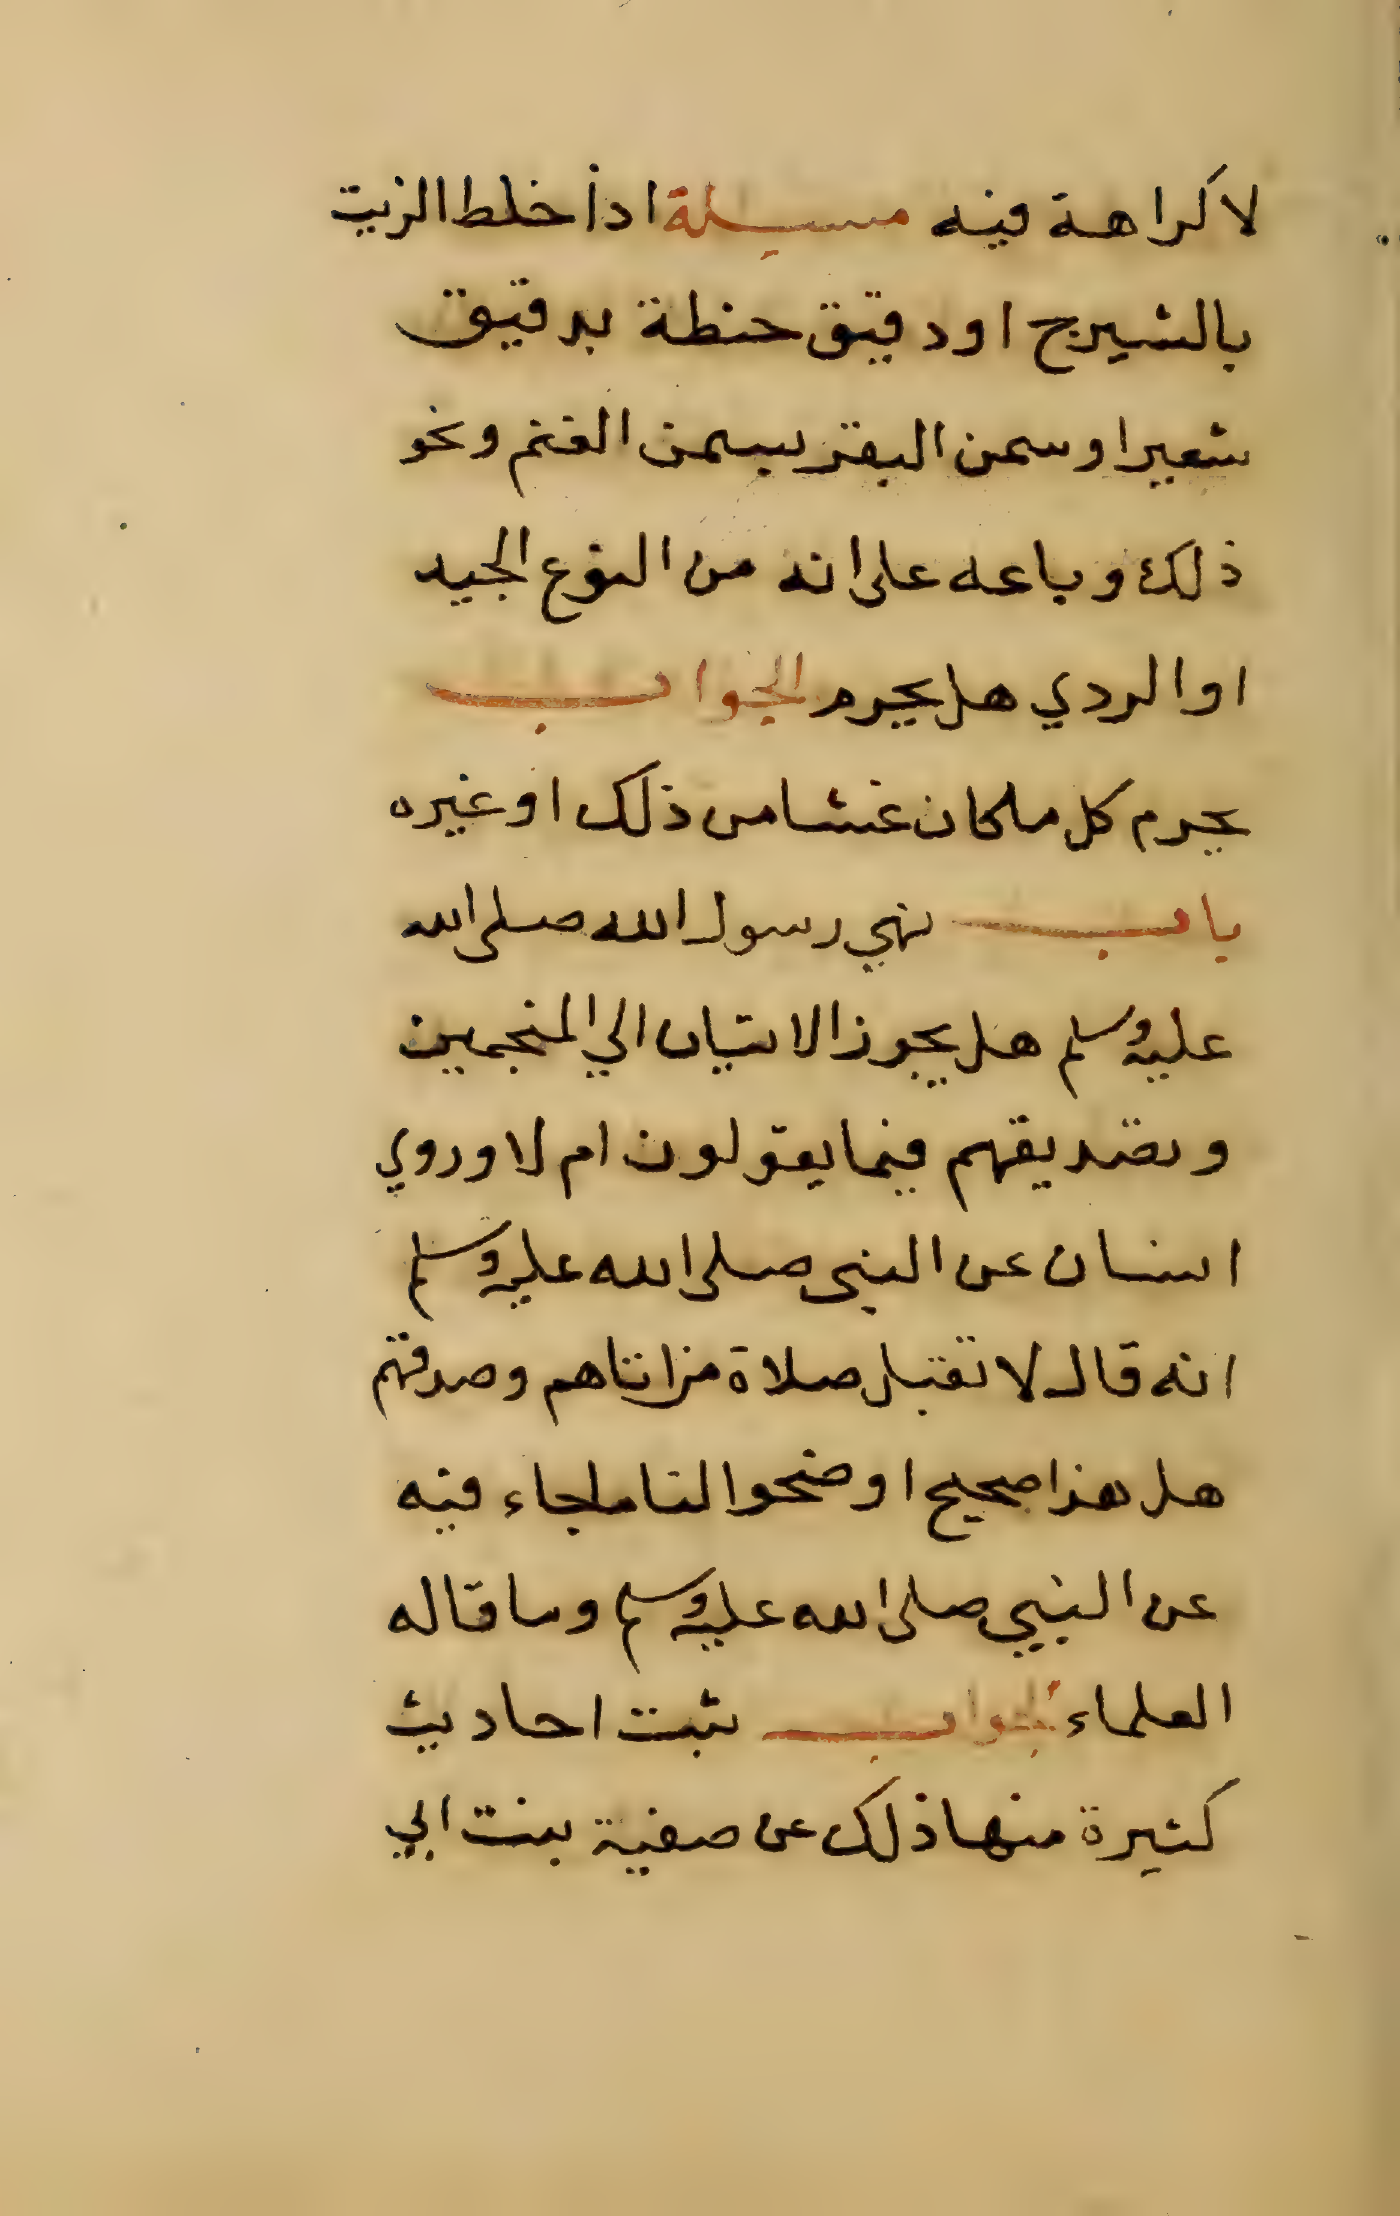 لا كراهة فيه مسيلة اذا خلط الزيت
بالشيرج او دقيق حنطة بدقيق
شعير او سمن البقر بسمن الغنم ونحو
ذلك وباعه على انه من النوع الجيد
او الردي هل يحرم الجواب
يحرم كل ما كان غشا من ذلك او غيره
باب نهي رسول الله صلى الله
عليه وسلم هل يجوز الاتيان الي المنجمين
وتصديقهم فيما يقولون ام لا وروي
انسان عن النبي صلى الله عليه وسلم
انه قال لا تقبل صلاة من اتاهم وصدقهم
هل هذا صحيح اوضحوا لنا ما جاء فيه
عن النبي صلى الله عليه وسلم وما قاله
العلماء الجواب ثبت احاديث
كثيرة منها ذلك عن صفية بنت ابي